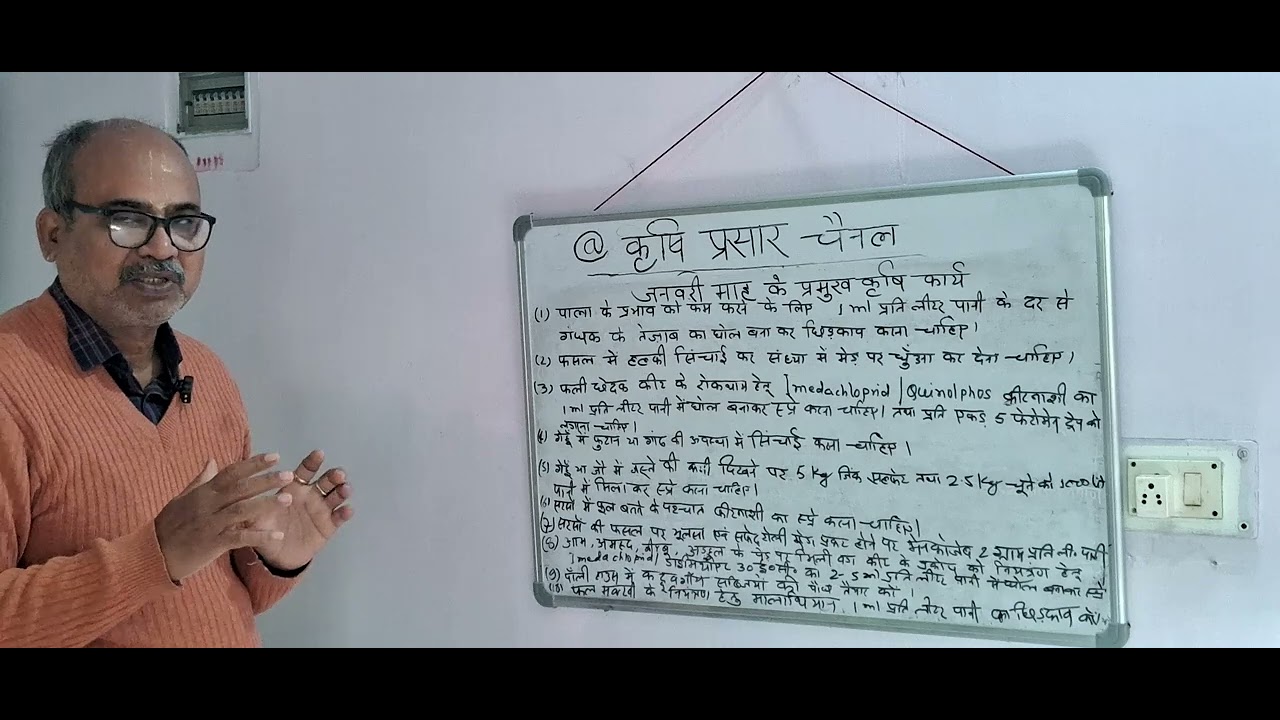 @ कृषि प्रसार चैनल
जनवरी माह के प्रमुख कृषि कार्य
(1) पाला के प्रभाव को कम करने के लिए 1 ml प्रति लीटर पानी के दर से
गंधक के तेजाब का घोल बना कर छिड़काव करना चाहिए।
(2) फसल में हल्की सिंचाई कर संध्या में मेड़ पर धुँआ कर देना चाहिए।
(3) फली छेदक कीट के रोकथाम हेतु Imedachloprid / Quinolphos कीटनाशी का
1 ml प्रति लीटर पानी में घोल बनाकर स्प्रे करना चाहिए। तथा प्रति एकड़ 5 फेरोमेन ट्रैप को
लगाना चाहिए।
(4) गेहूँ में फुटान या गांठ की अवस्था में सिंचाई करना चाहिए।
(5) गेहूँ या जौ में जस्ते की कमी दिखने पर 5 Kg जिंक सल्फेट तथा 2.5 Kg चूने को 1000 लि
पानी में मिला कर स्प्रे करना चाहिए।
(6) सरसों में फूल बनने के पश्चात कीटनाशी का स्प्रे करना चाहिए।
(7) सरसों की फसल पर झुलसा एवं सफेद रोली रोग प्रकट होने पर मेनकोजेब 2 ग्राम प्रति ली. पानी
(8) आम, अमरूद, के पेड़ पर मिली बग कीट के प्रकोप को नियंत्रण हेतु
Imedachloprid / डाईमिथोएट 30 ई०सी० का 2-5 ml प्रति लीटर पानी में घोल बनाकर स्प्रे
(9) पॉली हाउस में कद्दूवर्गीय सब्जियों की पौध तैयार करें।
(10) फल मक्खी के नियंत्रण हेतु मालाथियान 1 ml प्रति लीटर पानी का छिड़काव करें